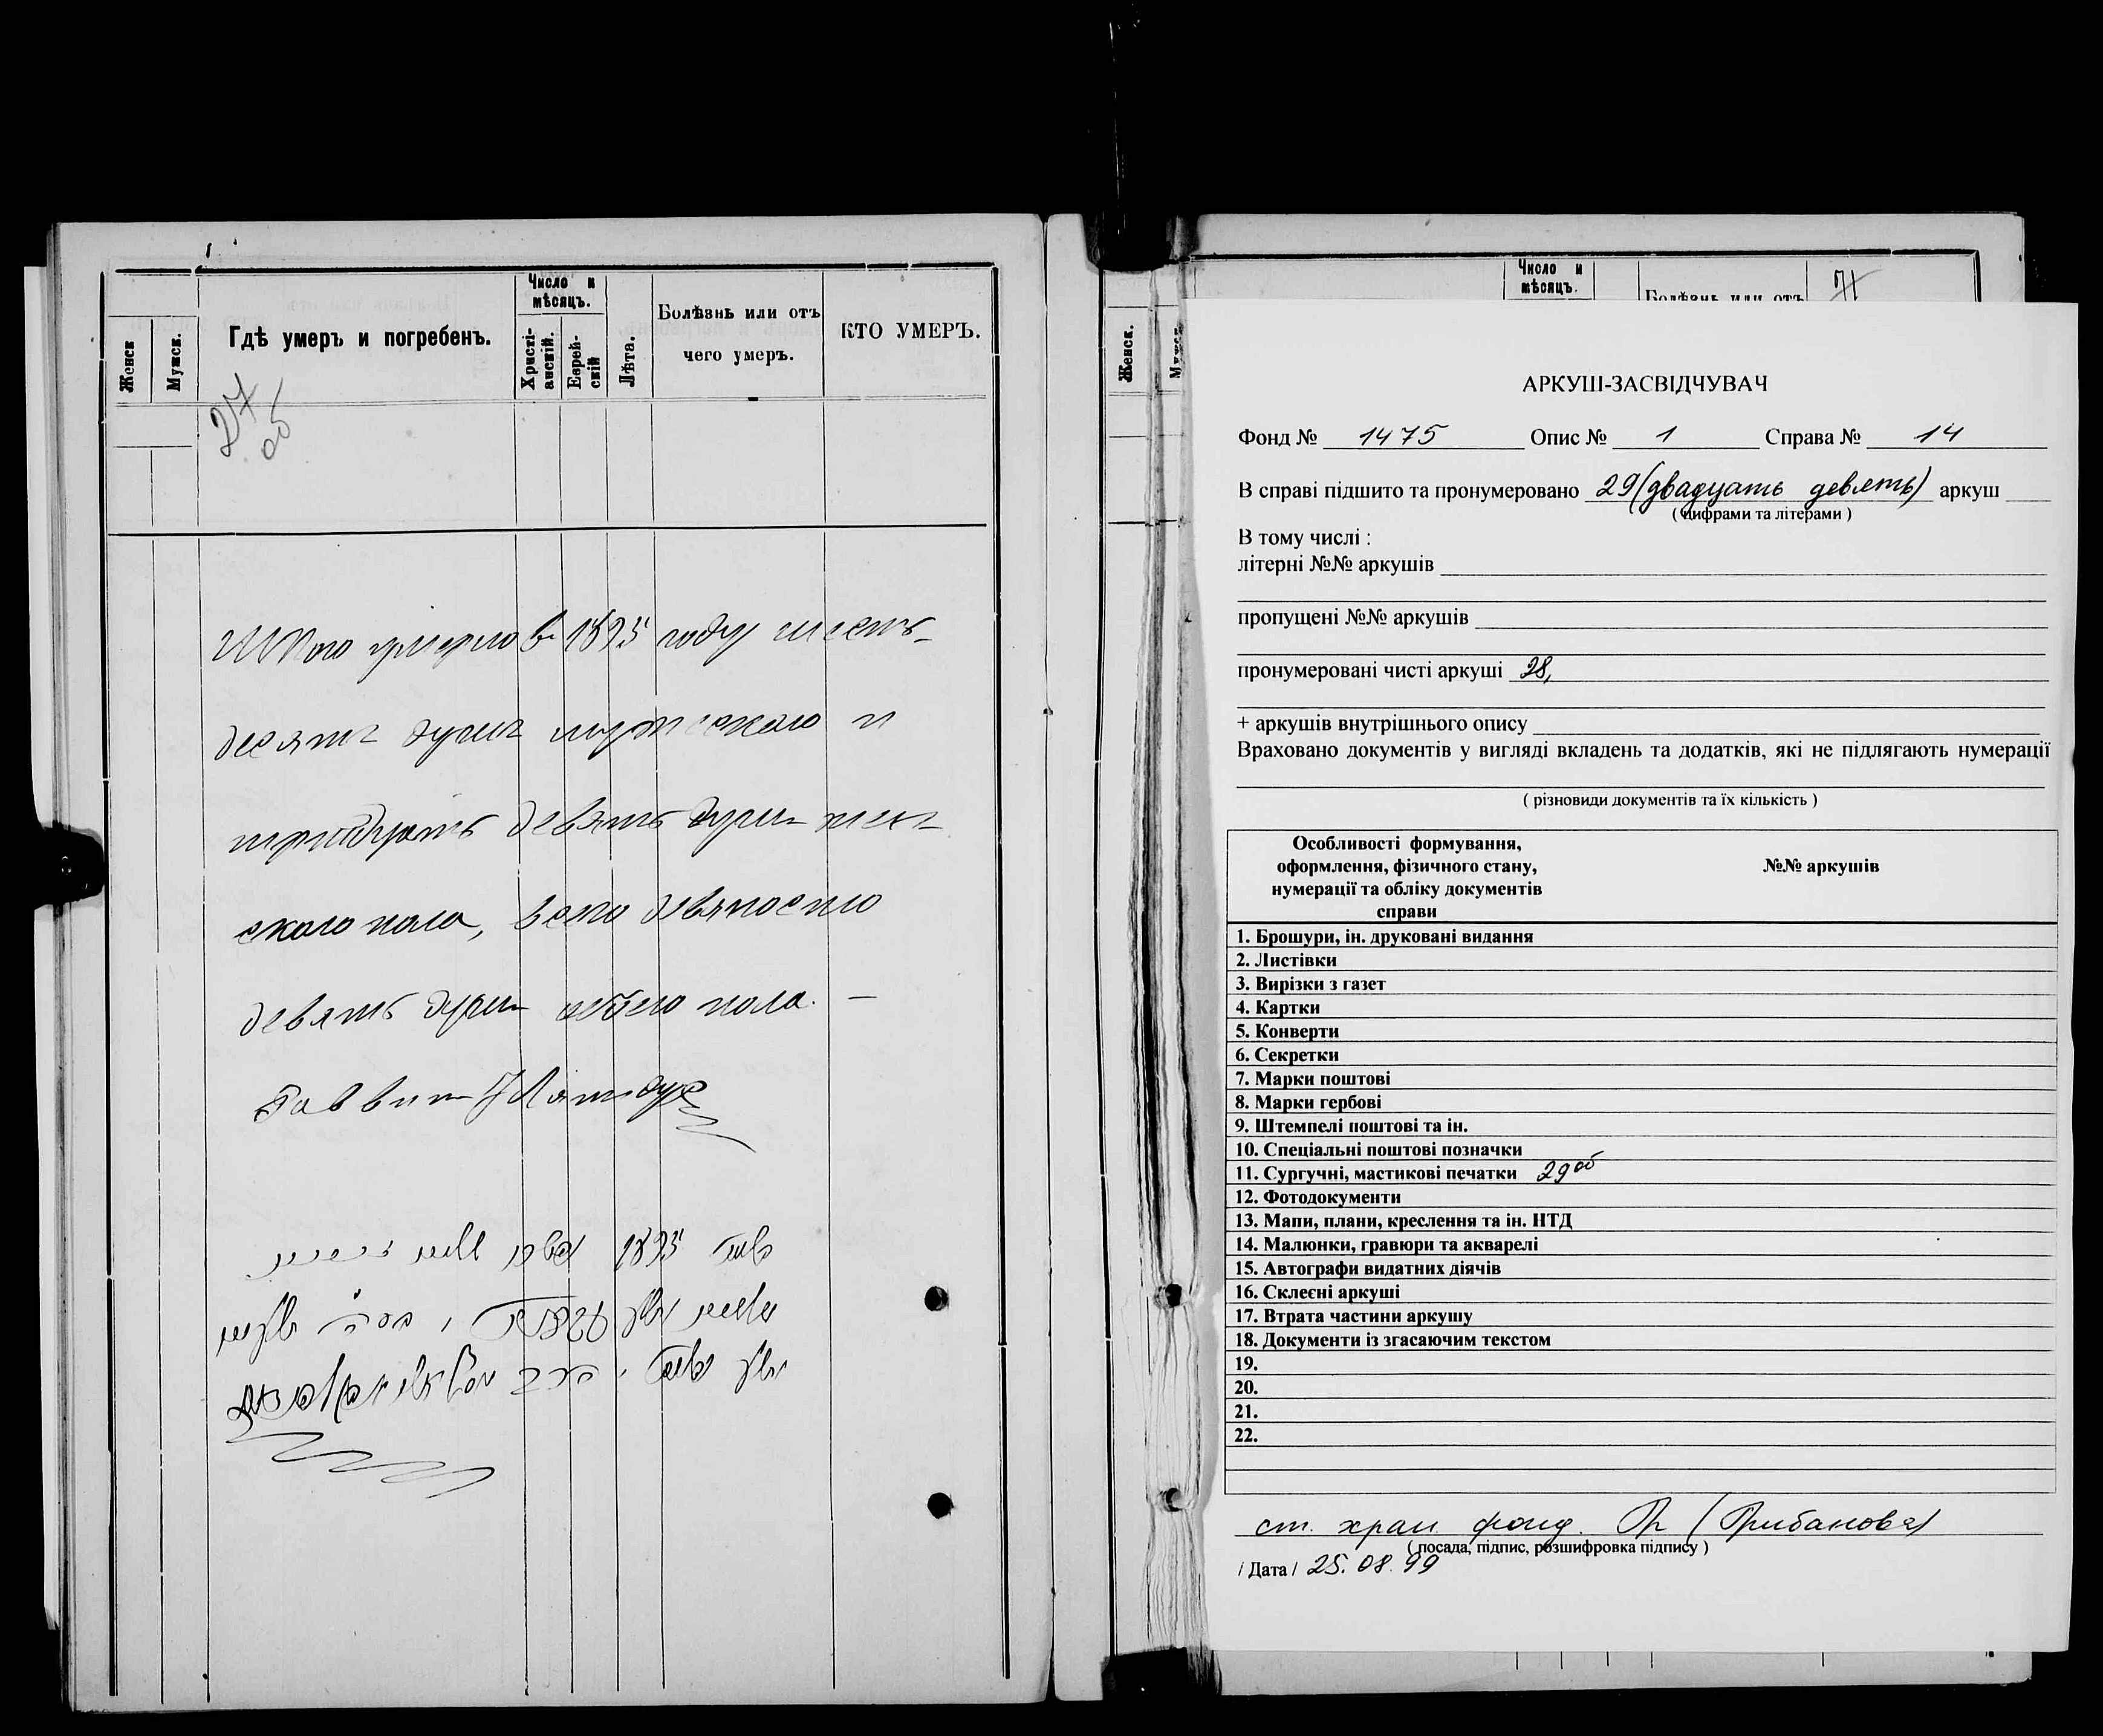 Женск
Мужск.
Гдѣ умеръ и погребенъ.
Число и мѣсяцъ.
Христі-анскій.
Еврей-скій
Лѣта.
Болѣзнь или отъ чего умеръ.
КТО УМЕРЪ.
27 об
Итого умерло в 1895 году шесть-
десятъ душъ мужескаго и
тридцать девять душъ жен-
скаго пола, всего девяносто
девять душъ обоего пола. —
Раввин
1895
Женск.
Число и мѣсяцъ.
Болѣзнь или отъ
АРКУШ-ЗАСВІДЧУВАЧ
Фонд № 1475 Опис № 1 Справа № 14
В справі підшито та пронумеровано 29 (двадцать девять) аркуш
( цифрами та літерами )
В тому числі :
літерні №№ аркушів
пропущені №№ аркушів
пронумеровані чисті аркуші 28,
+ аркушів внутрішнього опису
Враховано документів у вигляді вкладень та додатків, які не підлягають нумерації
( різновиди документів та їх кількість )
Особливості формування,
оформлення, фізичного стану,
нумерації та обліку документів
справи
№№ аркушів
1. Брошури, ін. друковані видання
2. Листівки
3. Вирізки з газет
4. Картки
5. Конверти
6. Секретки
7. Марки поштові
8. Марки гербові
9. Штемпелі поштові та ін.
10. Спеціальні поштові позначки
11. Сургучні, мастикові печатки 29 об
12. Фотодокументи
13. Мапи, плани, креслення та ін. НТД
14. Малюнки, гравюри та акварелі
15. Автографи видатних діячів
16. Склеєні аркуші
17. Втрата частини аркушу
18. Документи із згасаючим текстом
19.
20.
21.
22.
ст. хран фонд. Гр (Грибанова)
( посада, підпис, розшифровка підпису )
/ Дата / 25.08.99